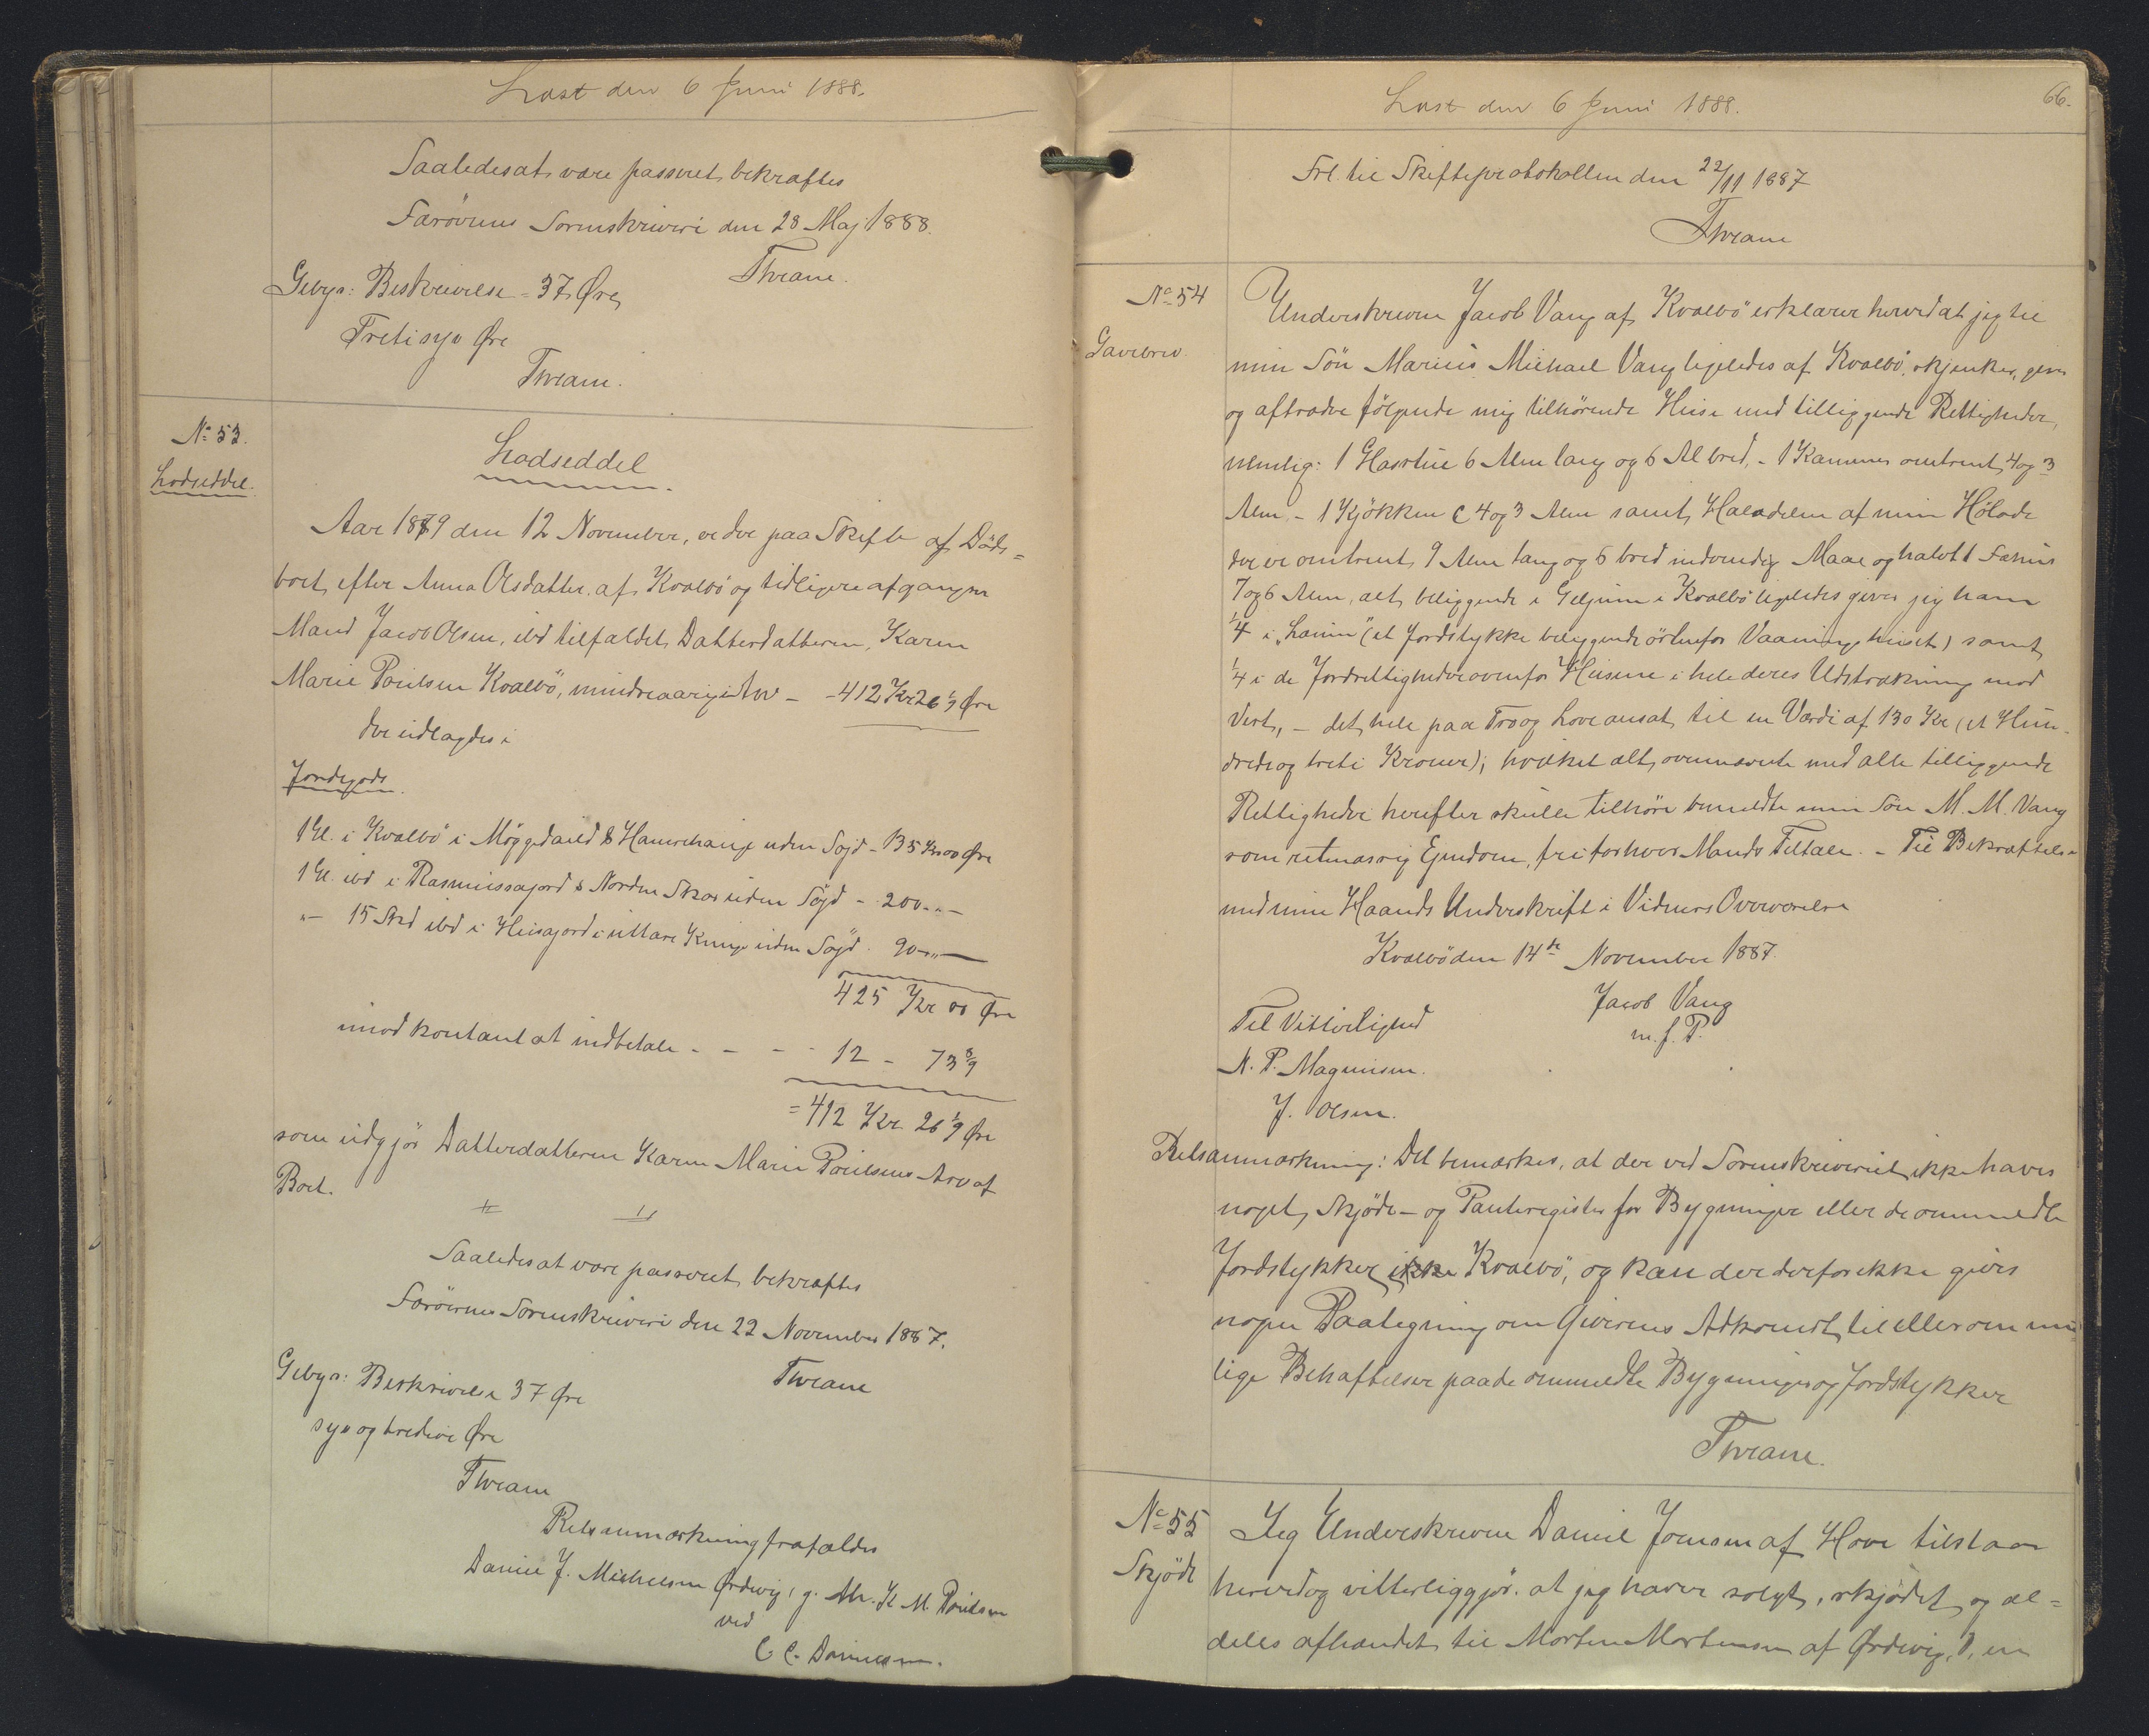 Læst den 6 Juni 1888.
Saaledes at være passeret bekræftes
Færöernes Sorenskriveri den 28 Maj 1888.
Thrane.
Gebyr: Beskrivelse = 37 Øre
Tretisyv Øre
Thrane.
No 53.
Lodseddel.
Lodseddel
Aar 1879 den 12 November, er der paa Skifte af Döds=
boet efter Anna Olsdatter af Kvalbö og tidligere afgangne
Mand Jacob Olsen, ibd tilfaldet Datterdatteren, Karen
Marie Poulsen Kvalbö, mindreaarig i Arv - - 412 Kr 26 1/9 Øre
der udlagdes i
Jordegods.
1 Gl. i Kvalbö i Möggedauld & Hamrehauge uden Sojd - 135 Kr 00 Øre
1 Gl. ibd i Rasmussajord & Norden Skor uden Söjd - 200 - " -
" - 15 Skd ibd i Huisajord i uttare Kunge uden Söjd. 90 - " -
425 Kr 00 Øre
imod kontant at indbetale - - - - 12 - 73 8/9
= 412 Kr. 26 1/9 Øre
som udgjör Datterdatteren Karen Marie Poulsens Arv af
Boet.
Saaledes at være passeret bekræftes
Færöernes Sorenskriveri den 22 November 1887.
Thrane
Gebyr: Beskrivelse 37 Øre
syv og tredive Øre
Thrane
Retsanmærkning frafaldes
Daniel J. Michelsen Ørdevig, g. M. K M. Poulsen
ved
C C. Danielsen.
Læst den 6 Juni 1888.
66.
Frl. til Skifteprotokollen den 22/11 1887
Thrane
No 54
Gavebrev.
Underskrevne Jacob Vang af Kvalbö erklærer herved at jeg til
min Sön Marius Michael Vang ligeledes af Kvalbö, skjenker, giver
og aftræder fölgende mig tilhörende Huse med tilliggende Rettigheder,
nemlig: 1 Glasstue 6 Alen lang og 6 Al bred, - 1 Kammer omtrent 4 og 3
Alen, - 1 Kjökken C 4 og 3 Alen samt Halvdelen af min Hölade
der er omtrent 9 Alen lang og 6 bred indvendig Maal og halvt 1 Fæhus
7 og 6 Alen, alt beliggende i Geljum i Kvalbö ligeledes giver jeg ham
1/4 i "Lænun" (et Jordstykke beliggende östenfor Vaaningshuset) samt
1/4 i de Jordrettigheder ovenfor Husene i hele deres Udstrækning mod
Vest, - det hele paa Tro og Love ansat til en Værdi af 130 Kr (et Hun-
drede og treti Kroner); hvilket alt ovennævnte med alle tilliggende
Rettigheder herefter skulle tilhöre bemeldte min Sön M. M. Vang
som retmæssig Ejendom, fri for hver Mands Tiltale. - Til Bekræftelse
med min Haands Underskrift i Vidners Overværelse
Kvalbö den 14de November 1887.
Jacob Vang
m. f. P.
Til Vitterlighed
N. P. Magnusen.
J. Olsen.
Retsanmærkning: Det bemærkes, at der ved Sorenskriveriet ikke haves
noget Skjöde- og Panteregister for Bygninger eller de ommeldte
Jordstykker ikke Kvalbö, og kan der derfor ikke gives
nogen Paategning om Giverens Adkomst til eller om mu=
lige Behæftelser paa de ommeldte Bygninger og Jordstykker
Thrane.
No 55
Skjöde
Jeg Underskrevne Daniel Joensen af Hove tilstaar
herved og vitterliggjör. at jeg haver solgt, skjödet og al=
deles afhændet til Morten Mortensen af Ørdevig, 1, en